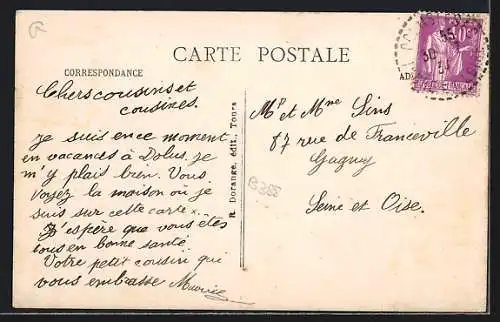 CARTE POSTALE
CORRESPONDANCE
Chers cousins et
cousines.
Je suis en ce moment
en vacances à Dolus, je
m'y plais bien. Vous
voyez la maison où je
suis sur cette carte.
J'espère que vous êtes
tous en bonne santé
Votre petit cousin qui
vous embrasse Maurice
R. Dorange, édit., Tours
B355
Mr et Mme Sins
87 rue de Franceville
Gagny
Seine et Oise.